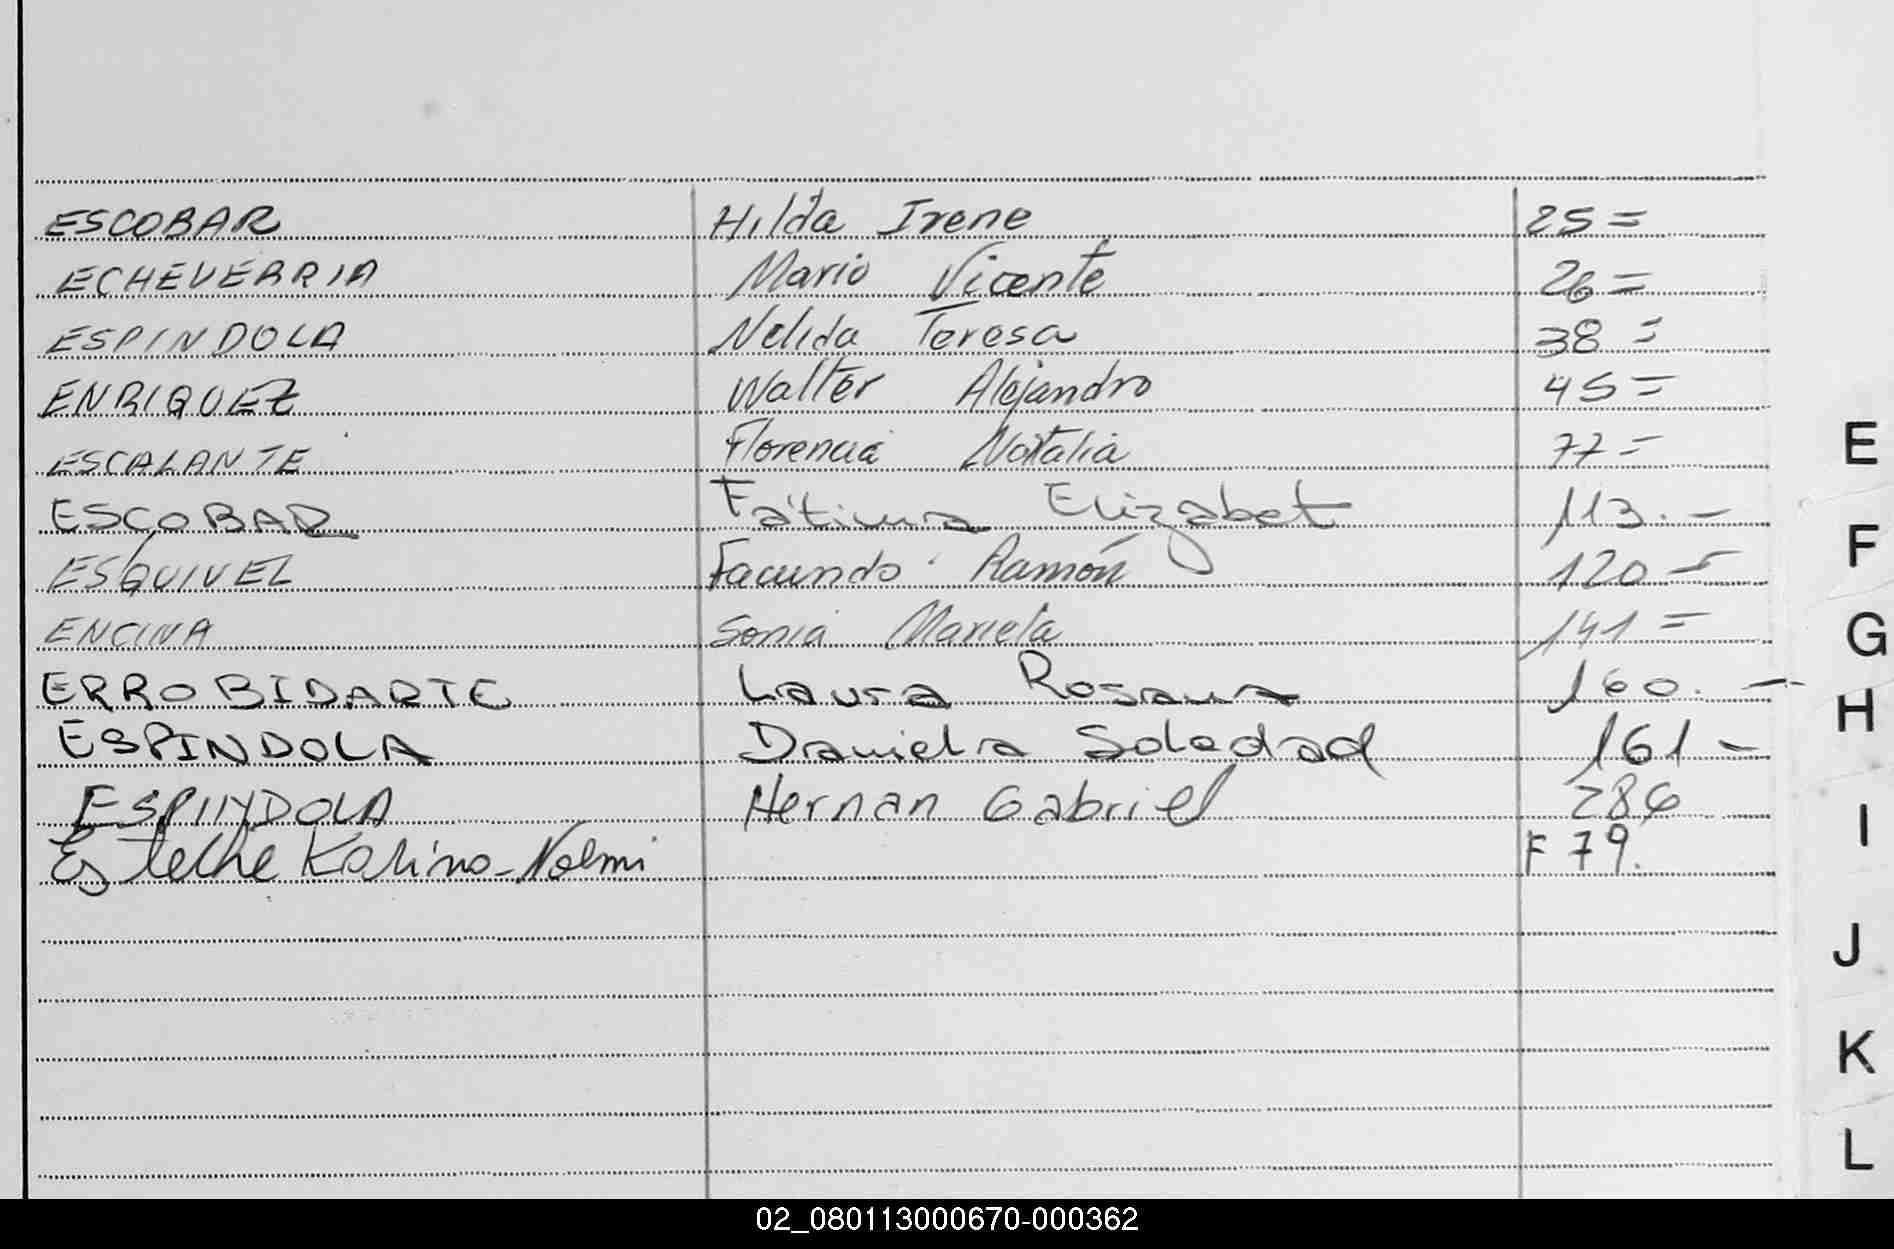 ESCOBAR Hilda Irene 25 =
ECHEVERRIA Mario Vicente 26 =
ESPINDOLA Nelida Teresa 38 =
ENRIQUEZ Walter Alejandro 45 =
ESCALANTE Florencia Natalia 77 =
ESCOBAR Fátima Elizabet 113. -
ESQUIVEL Facundo Ramón 120 =
ENCINA Sonia Mariela 141 =
ERROBIDARTE Laura Rosana 160. -
ESPINDOLA Daniela Soledad 161 -
ESPINDOLA Hernan Gabriel 286
Esteche Karina-Noemi F 79.
E
F
G
H
I
J
K
L
02_080113000670-000362